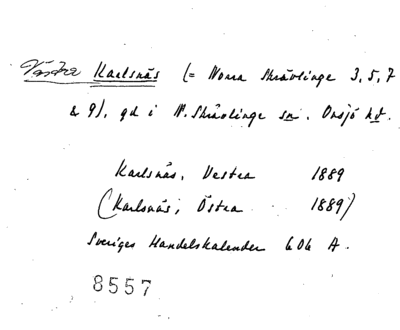 Västra Karlsnäs (= Norra Skrävlinge 3, 5, 7
& 9), gd i N. Skrävlinge sn. Onsjö hd.
Karlsnäs, Vestra 1889
(Karlsnäs, Östra 1889)
Sveriges Handelskalender 606 A.
8557